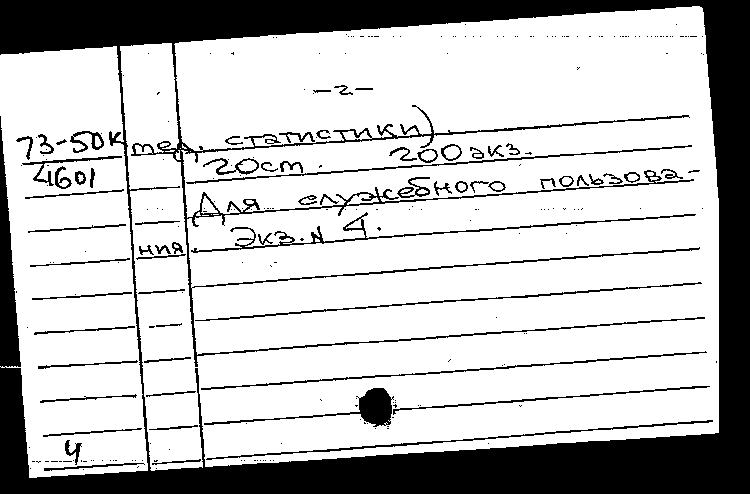 -2-
73-50К мед. статистики).
4601 20ст. 200 экз.
Для служебного пользова-
ния. Экз. N 4.
4